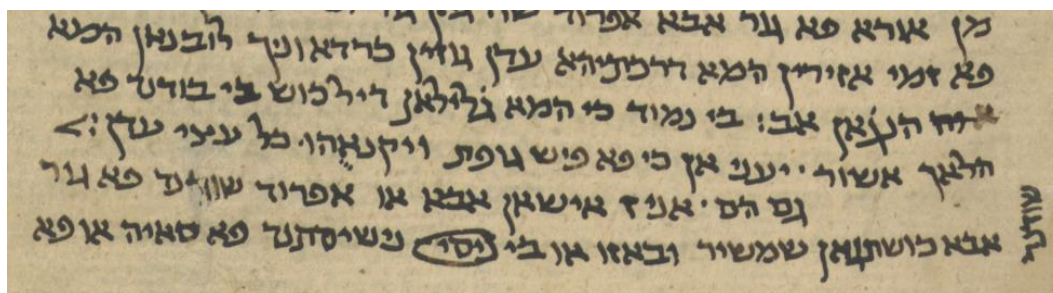 מן אורא פא גור אבא אפרוד
פא זמי אזירין המא דרכתיהא עדן גוזין כרדא וניך לובנאן המא
הנגאן אב: בי נמוד כי המא גלילאן דיל כוש בי בודנד פא
הלאך אשור · יעני אן כי פא פיש גופת ויקנאהו · כל עצי עדן :
גם הם · אניז אישאן אבא או אפרוד שודנד פא גור
אבא כושתגאן שמשיר ובאזו או בי יסי נישיסתנד פא סאיה או פא